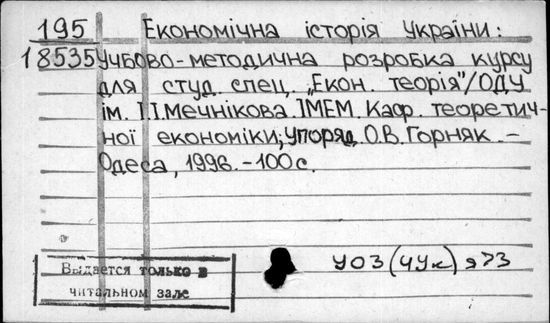 195 Економічна історія України:
18535 Учбово-методична розробка курсу
для студ. спец. „Екон. теорія"/ОДУ
ім. І.І.Мечнікова. ІМЕМ. Каф. теоретич-
ної економіки; Упоряд. О.В. Горняк. –
Одеса, 1996. – 100 с.
У03(4Ук)я73
Выдается только в
читальном зале